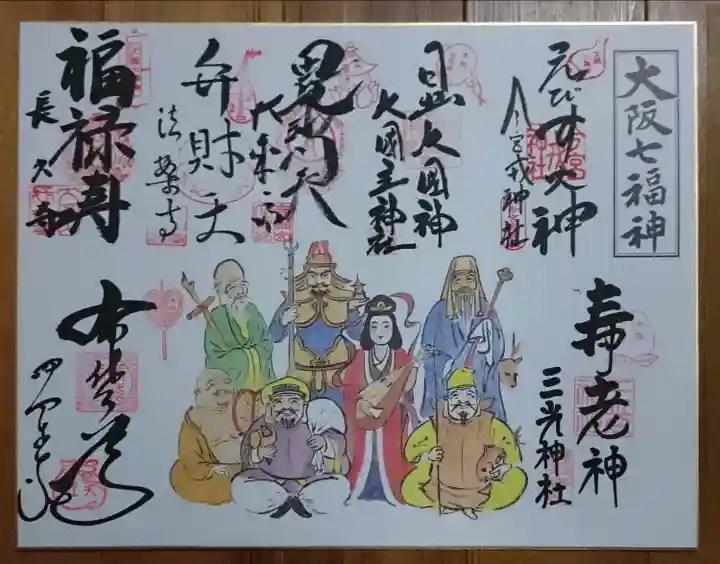 大阪七福神
えびす大神
今宮戎神社
日出大国神
大国主神社
毘沙門天
大乗坊
弁財天
法案寺
福禄寿
長久寺
寿老神
三光神社
布袋尊
四天王寺